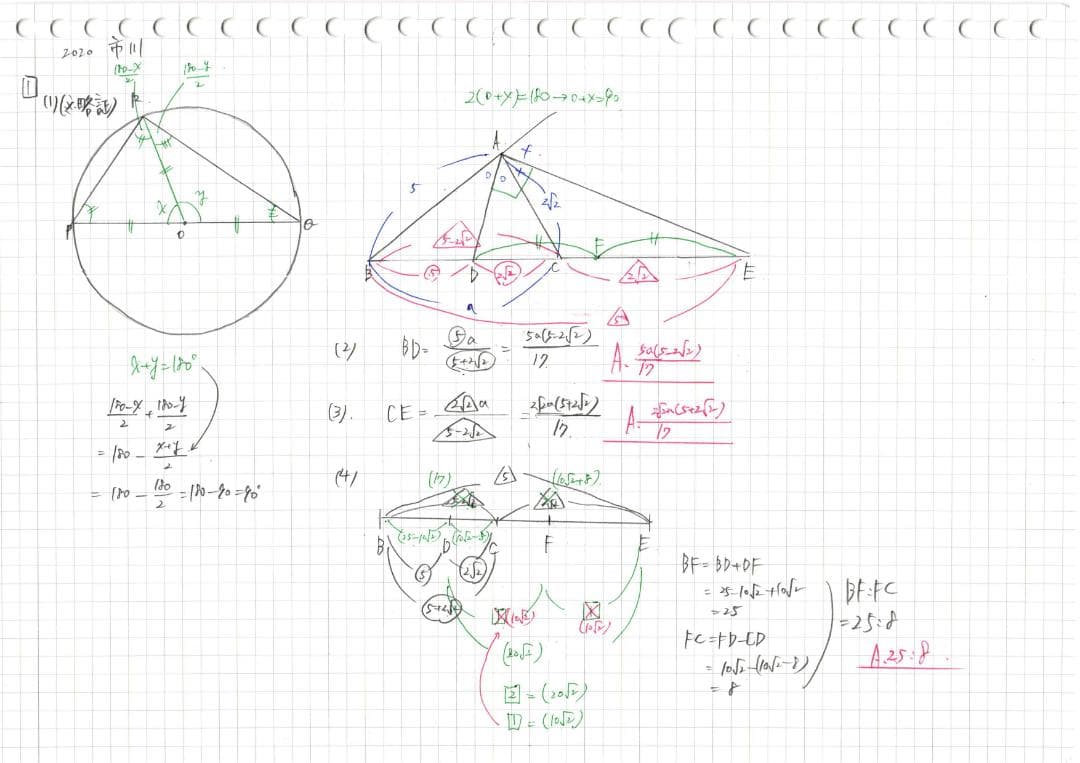 2020 市川
1
(1)(※略証)
180-x/2
180-y/2
R
x
y
P
O
Q
x+y=180°
180-x/2 + 180-y/2
= 180 - x+y/2
= 180 - 180/2 = 180-90=90°
2(o+x)=180→o+x=90
A
x
o
o
x
5
2√2
5-2√2
B
5
D
2√2
C
F
2√2
E
a
5
(2) BD= 5a/5+2√2 = 5a(5-2√2)/17 A. 5a(5-2√2)/17
(3). CE= 2√2a/5-2√2 = 2√2a(5+2√2)/17. A. 2√2a(5+2√2)/17
(4)
(17)
5
(10√2+8)
(25-10√2)
(10√2-8)
B
D
C
F
E
5
2√2
5+2√2
1
(10√2)
1
(10√2)
(20√2)
2 = (20√2)
1 = (10√2)
BF=BD+DF
= 25-10√2+10√2
= 25
FC=FD-CD
= 10√2-(10√2-8)
= 8
BF:FC
=25:8
A.25:8.